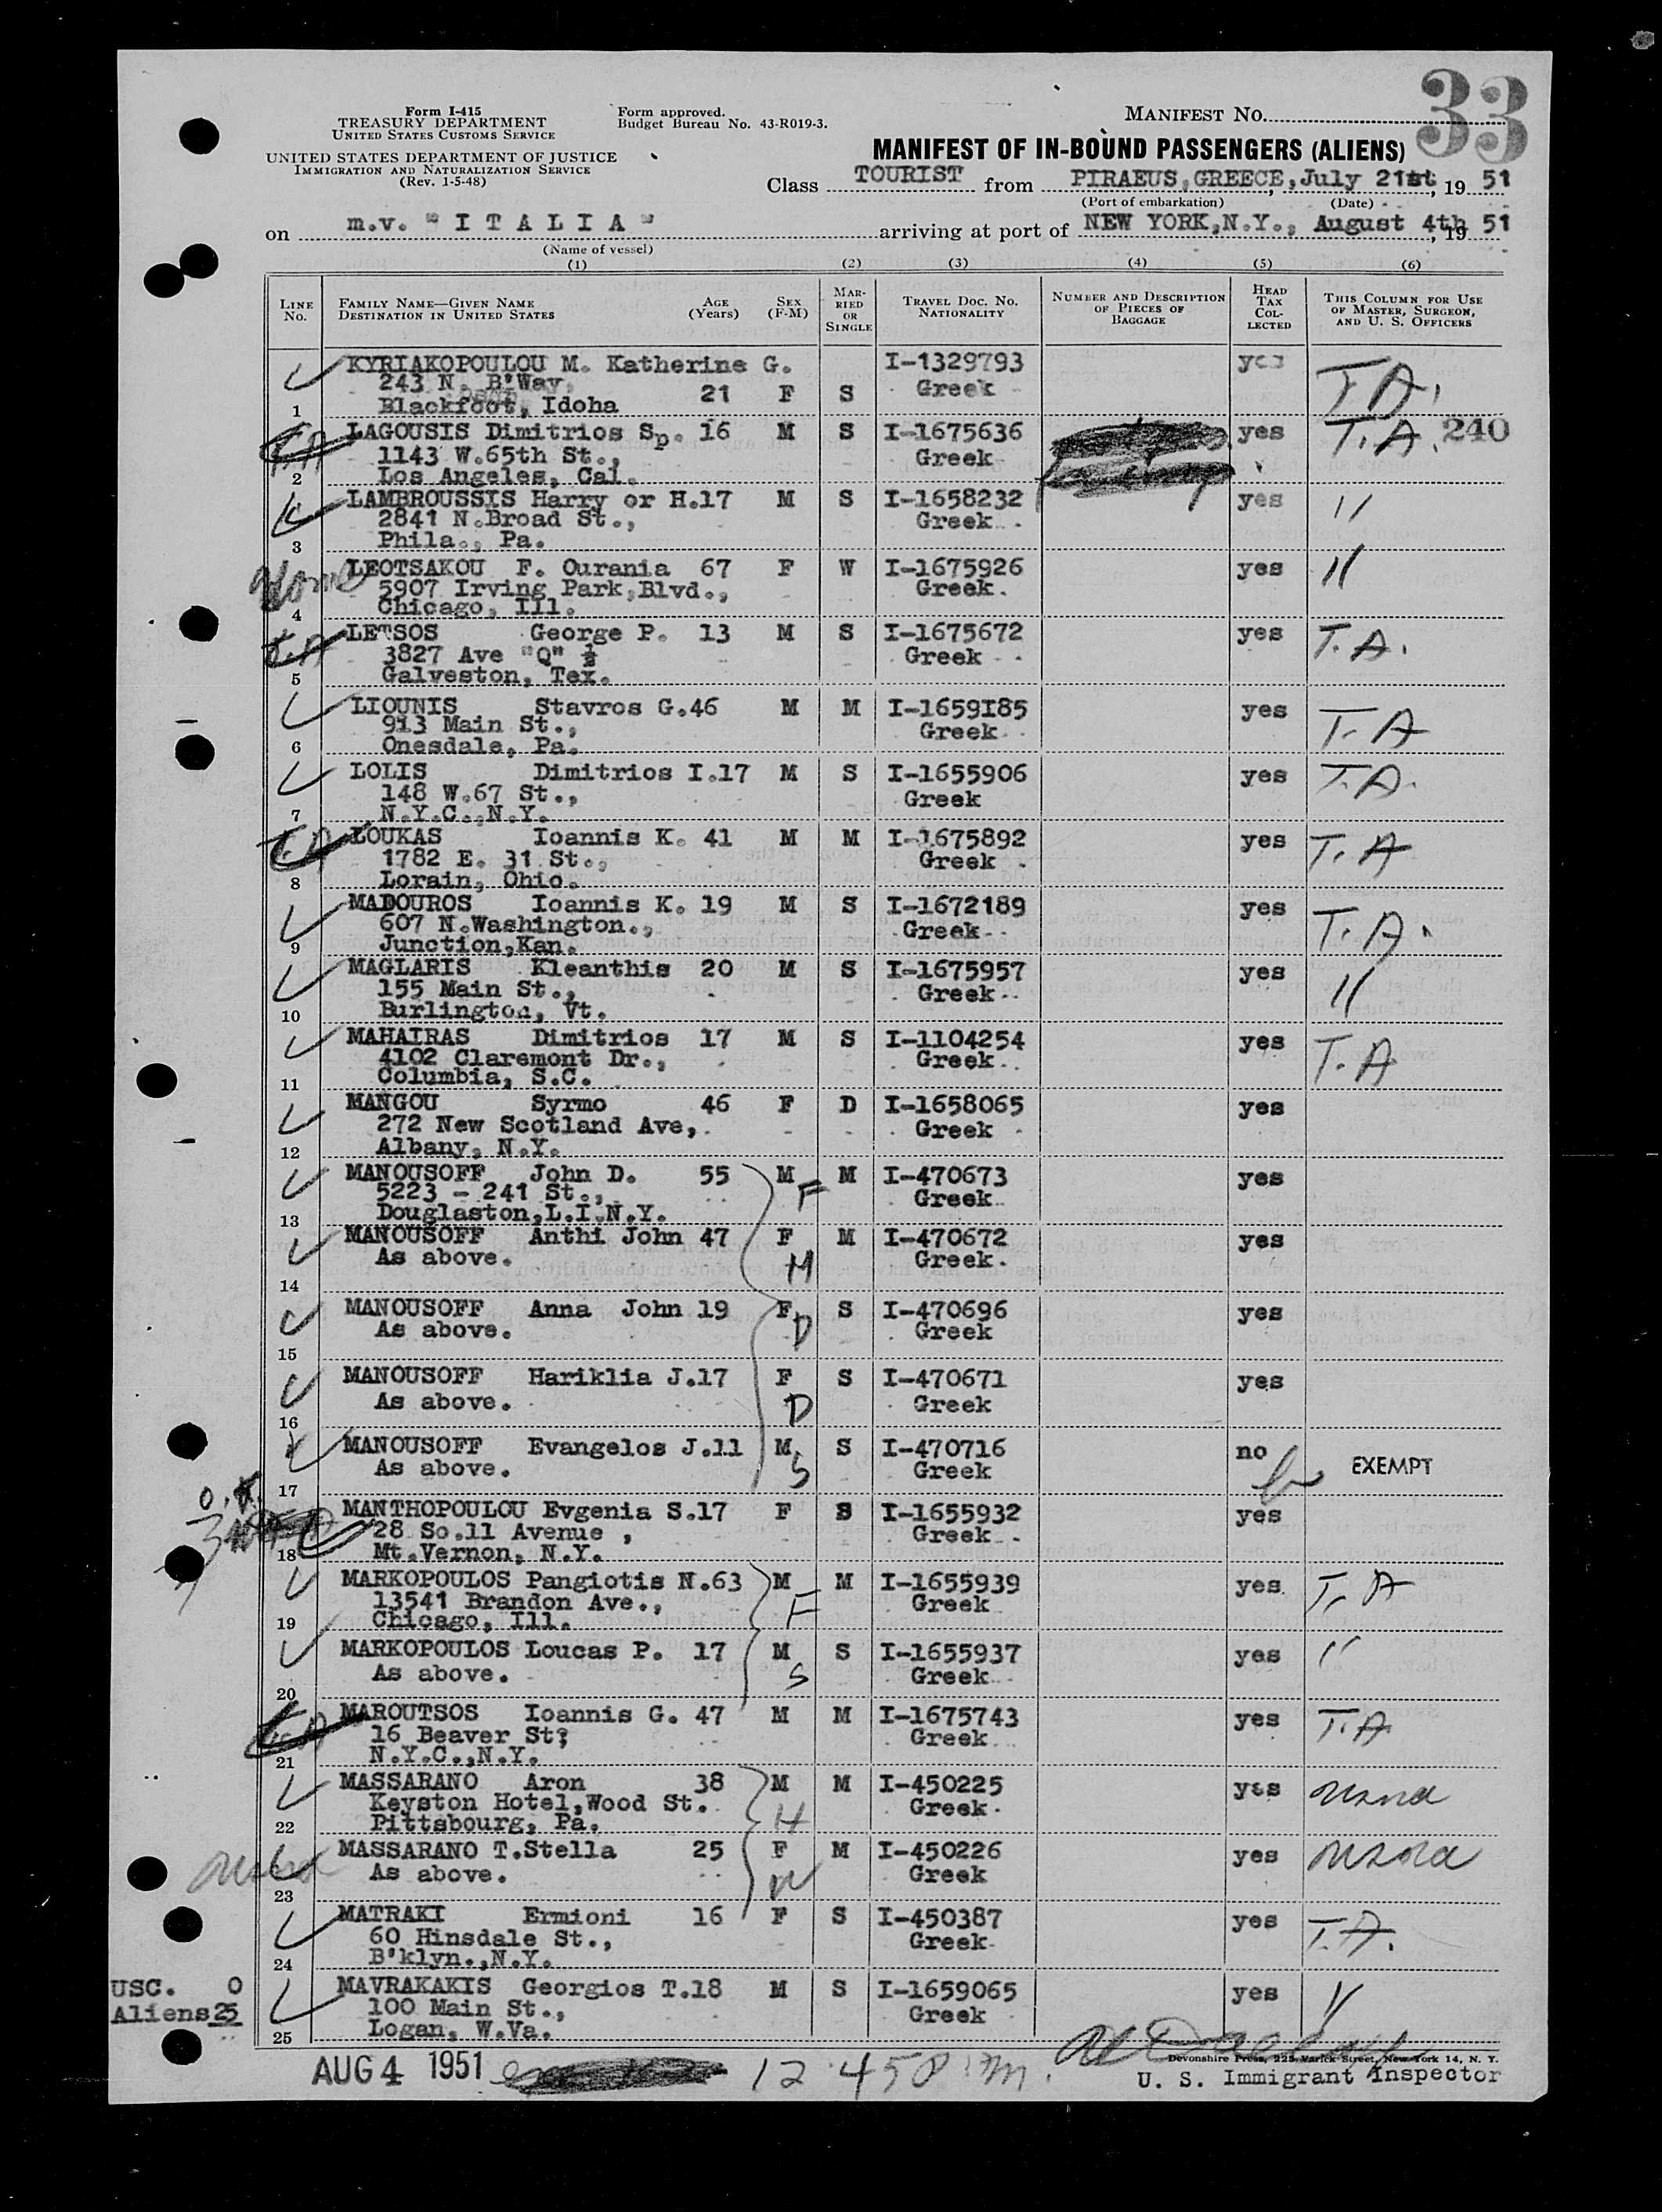 33
Form I-415
TREASURY DEPARTMENT
UNITED STATES CUSTOMS SERVICE
UNITED STATES DEPARTMENT OF JUSTICE
IMMIGRATION AND NATURALIZATION SERVICE
(Rev. 1-5-48)
Form approved.
Budget Bureau No. 43-R019-3.
MANIFEST NO.
MANIFEST OF IN-BOUND PASSENGERS (ALIENS)
Class TOURIST from PIRAEUS,GREECE, July 21st, 19 51
(Port of embarkation) (Date)
on m.v. "I T A L I A" arriving at port of NEW YORK,N.Y., August 4th, 19 51
(Name of vessel)
(1) (2) (3) (4) (5) (6)
LINE No. FAMILY NAME—GIVEN NAME DESTINATION IN UNITED STATES AGE (Years) SEX (F-M) MARRIED OR SINGLE TRAVEL DOC. NO. NATIONALITY NUMBER AND DESCRIPTION OF PIECES OF BAGGAGE HEAD TAX COLLECTED THIS COLUMN FOR USE OF MASTER, SURGEON, AND U. S. OFFICERS
KYRIAKOPOULOU M. Katherine G. I-1329793 yes T.A.
243 N. B'Way 21 F S Greek
1 Blackfoot, Idoha
T.A LAGOUSIS Dimitrios Sp. 16 M S I-1675636 yes T.A. 240
1143 W.65th St., Greek
2 Los Angeles, Cal.
LAMBROUSSIS Harry or H.17 M S I-1658232 yes "
2841 N.Broad St., Greek
3 Phila., Pa.
LEOTSAKOU F. Ourania 67 F W I-1675926 yes "
5907 Irving Park,Blvd., Greek.
4 Chicago, Ill.
T.A LETSOS George P. 13 M S I-1675672 yes T.A.
3827 Ave "Q" ½ Greek
5 Galveston, Tex.
LIOUNIS Stavros G.46 M M I-1659185 yes T.A
913 Main St., Greek
6 Onesdale, Pa.
LOLIS Dimitrios I.17 M S I-1655906 yes T.A.
148 W.67 St., Greek
7 N.Y.C.,N.Y.
T.A LOUKAS Ioannis K. 41 M M I-1675892 yes T.A
1782 E. 31 St., Greek
8 Lorain, Ohio.
MADOUROS Ioannis K. 19 M S I-1672189 yes T.A.
607 N.Washington., Greek
9 Junction,Kan.
MAGLARIS Kleanthis 20 M S I-1675957 yes "
155 Main St., Greek
10 Burlington, Vt.
MAHAIRAS Dimitrios 17 M S I-1104254 yes T.A
4102 Claremont Dr., Greek
11 Columbia, S.C.
MANGOU Syrmo 46 F D I-1658065 yes
272 New Scotland Ave, Greek
12 Albany, N.Y.
MANOUSOFF John D. 55 M F M I-470673 yes
5223 - 241 St., Greek
13 Douglaston,L.I.N.Y.
MANOUSOFF Anthi John 47 F M I-470672 yes
As above. M Greek.
14
MANOUSOFF Anna John 19 F D S I-470696 yes
As above. Greek
15
MANOUSOFF Hariklia J.17 F S I-470671 yes
As above. D Greek
16
MANOUSOFF Evangelos J.11 M S I-470716 no EXEMPT
As above. S Greek
17
O.K.
MANTHOPOULOU Evgenia S.17 F S I-1655932 yes
28 So.11 Avenue , Greek
18 Mt.Vernon, N.Y.
MARKOPOULOS Pangiotis N.63 M M I-1655939 yes. T.A
13541 Brandon Ave., F Greek
19 Chicago, Ill.
MARKOPOULOS Loucas P. 17 M S I-1655937 yes "
As above. S Greek
20
T.A MAROUTSOS Ioannis G. 47 M M I-1675743 yes T.A
16 Beaver St; Greek
21 N.Y.C.,N.Y.
MASSARANO Aron 38 M M I-450225 yes
Keyston Hotel,Wood St. H Greek
22 Pittsbourg, Pa.
MASSARANO T.Stella 25 F M I-450226 yes
As above. W Greek
23
MATRAKI Ermioni 16 F S I-450387 yes T.A.
60 Hinsdale St., Greek
24 B'klyn.,N.Y.
USC. 0 MAVRAKAKIS Georgios T.18 M S I-1659065 yes "
Aliens 25 100 Main St., Greek
25 Logan, W.Va.
Devonshire Press, 225 Varick Street, New York 14, N. Y.
AUG 4 1951 12 45 P.M.
U. S. Immigrant Inspector